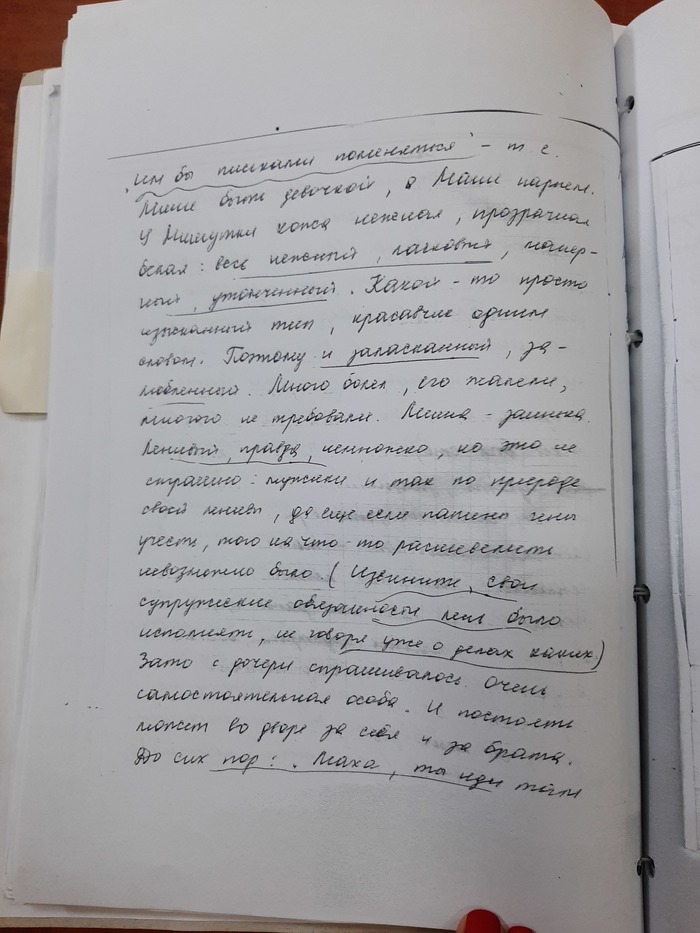 „им бы письками поменяться" – т. е.
Мише быть девочкой, а Маше парнем.
У Мишутки кожа нежная, прозрачная
белая: весь нежный, ласковый, манер-
ный, утонченный. Какой-то просто
изысканный тип, красавчик одним
словом. Поэтому и заласканный, за-
любленный. Много болел, его жалели,
многого не требовали. Миша – заинька.
Ленивый, правда, немножко, но это не
страшно: мужики и так по природе
своей ленивы, да еще если папины гены
учесть, того на что-то расшевелить
невозможно было (Извините, свои
супружеские обязанности лень было
исполнять, не говоря уже о делах каких)
Зато с дочери спрашивалось. Очень
самостоятельная особа. И постоять
может во дворе за себя и за брата.
До сих пор: „Маха, ты иди